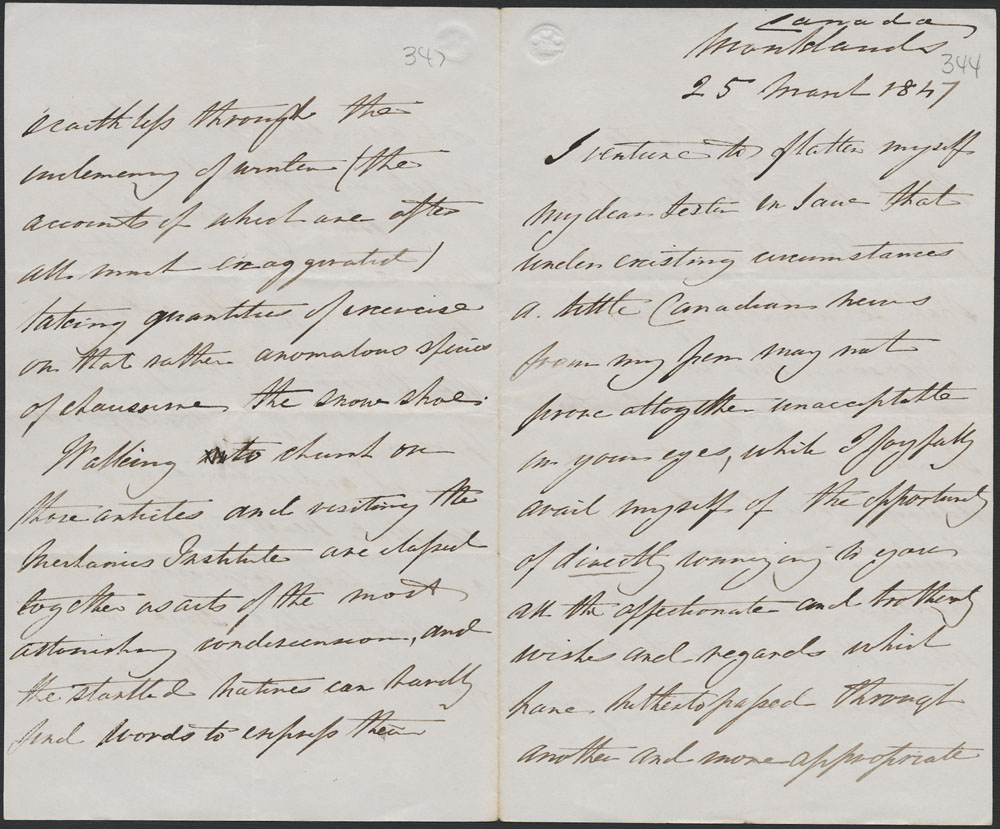 347
scathless through the
inclemency of winter (the
accounts of which are after
all much exaggerated)
taking quantities of exercise
on that rather anomalous species
of chaussure, the snow shoe.
Walking to church on
those articles and visiting the
Mechanics Institute are classed
together as acts of the most
astonishing condescension, and
the startled natives can hardly
find words to express their
Canada
Monklands
344
25 March 1847
I venture to flatter myself
my dear Sister in Law that
under existing circumstances
a little Canadian news
from my pen may not
prove altogether unacceptable
in your eyes, while I joyfully
avail myself of the opportunity
of directly conveying to you
all the affectionate and brotherly
wishes and regards which
have hitherto passed through
another and more appropriate